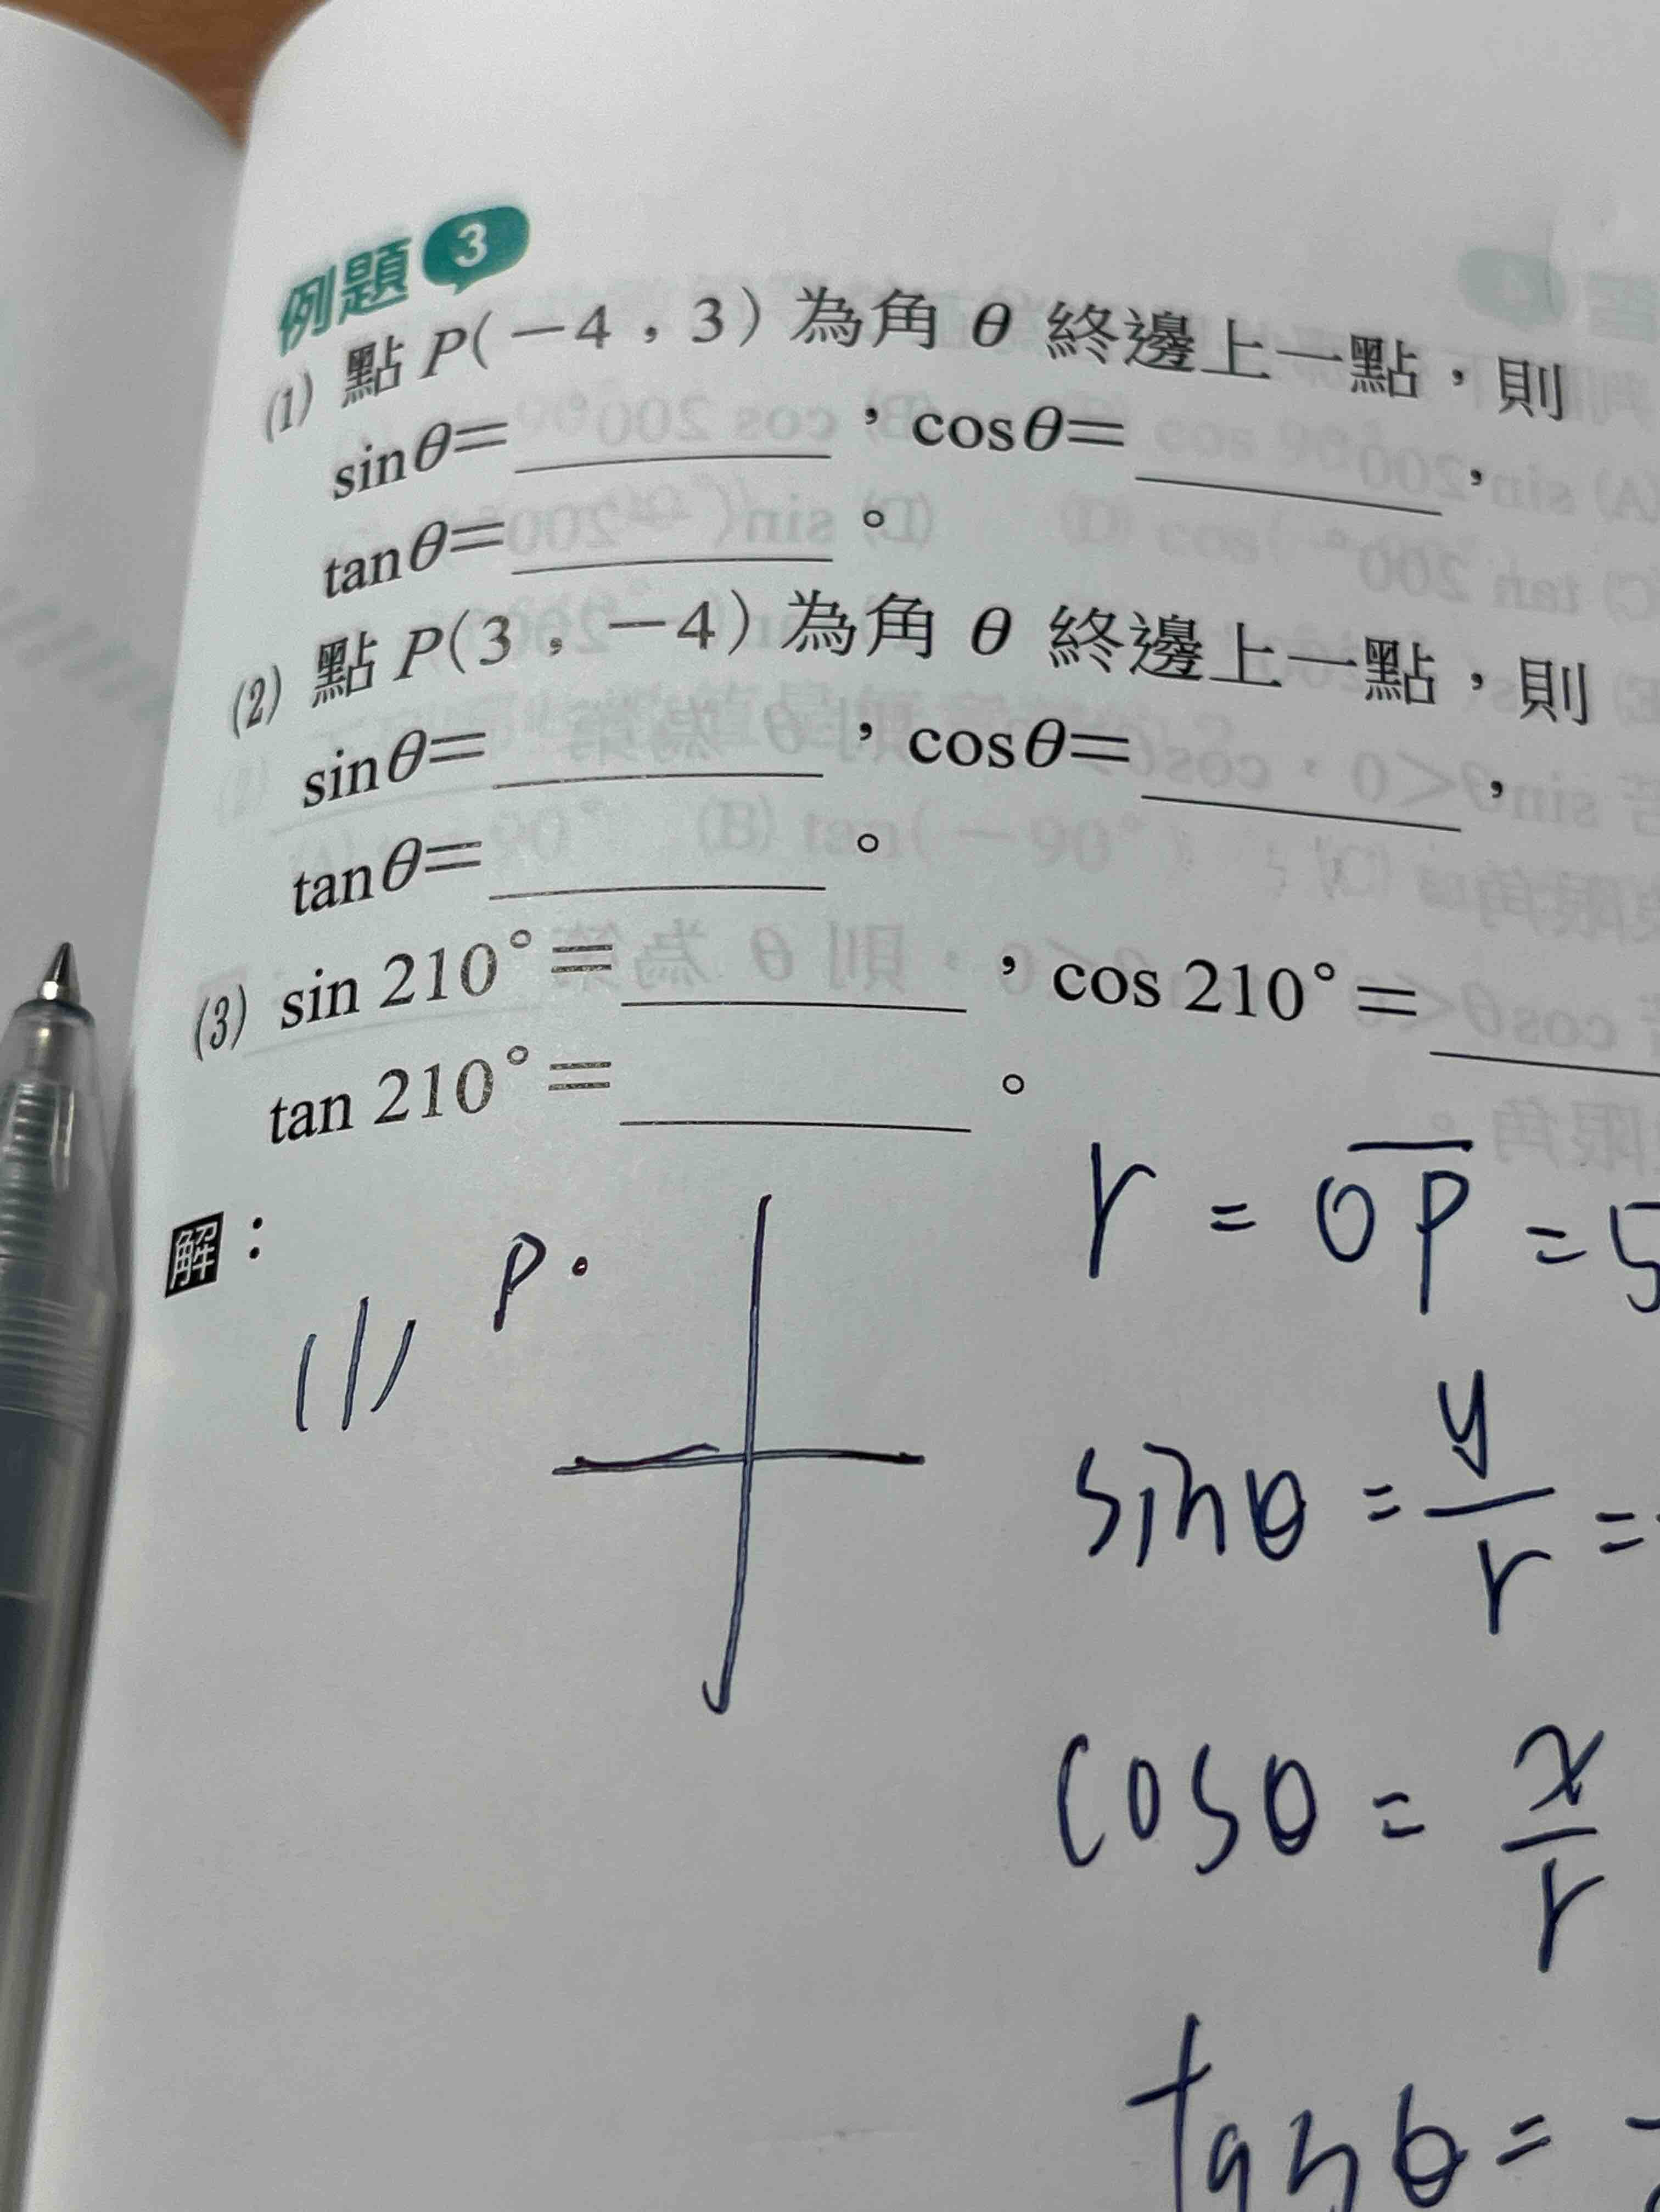 例題 3
(1) 點 P(-4,3) 為角 θ 終邊上一點,則
sinθ=________,cosθ=________,
tanθ=________。
(2) 點 P(3,-4) 為角 θ 終邊上一點,則
sinθ=________,cosθ=________,
tanθ=________。
(3) sin 210°=________,cos 210°=________
tan 210°=________。
解:
(1)
P
r = OP = 5
sinθ = y/r =
cosθ = x/r
tanθ =